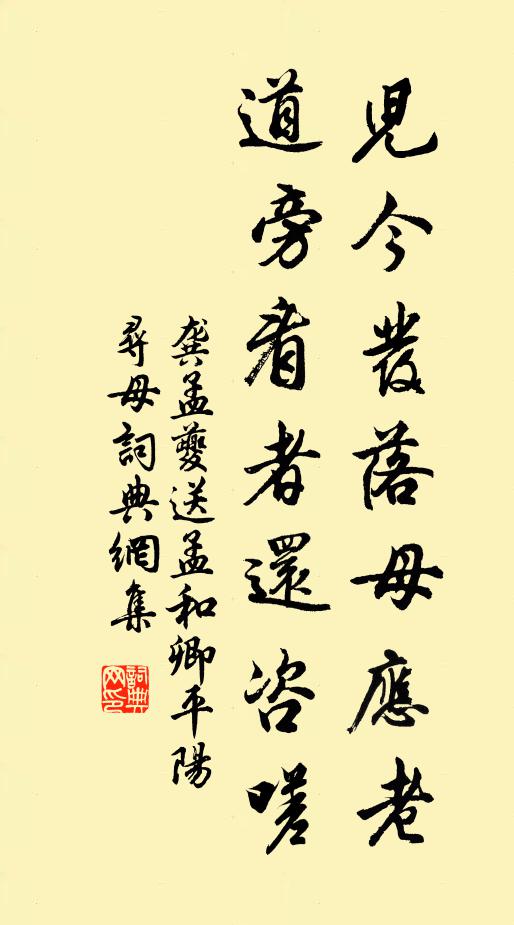 見今發落母應老
道旁看者還咨嗟
龔孟夔送孟和卿平陽
尋母詞典網集
詞典網印